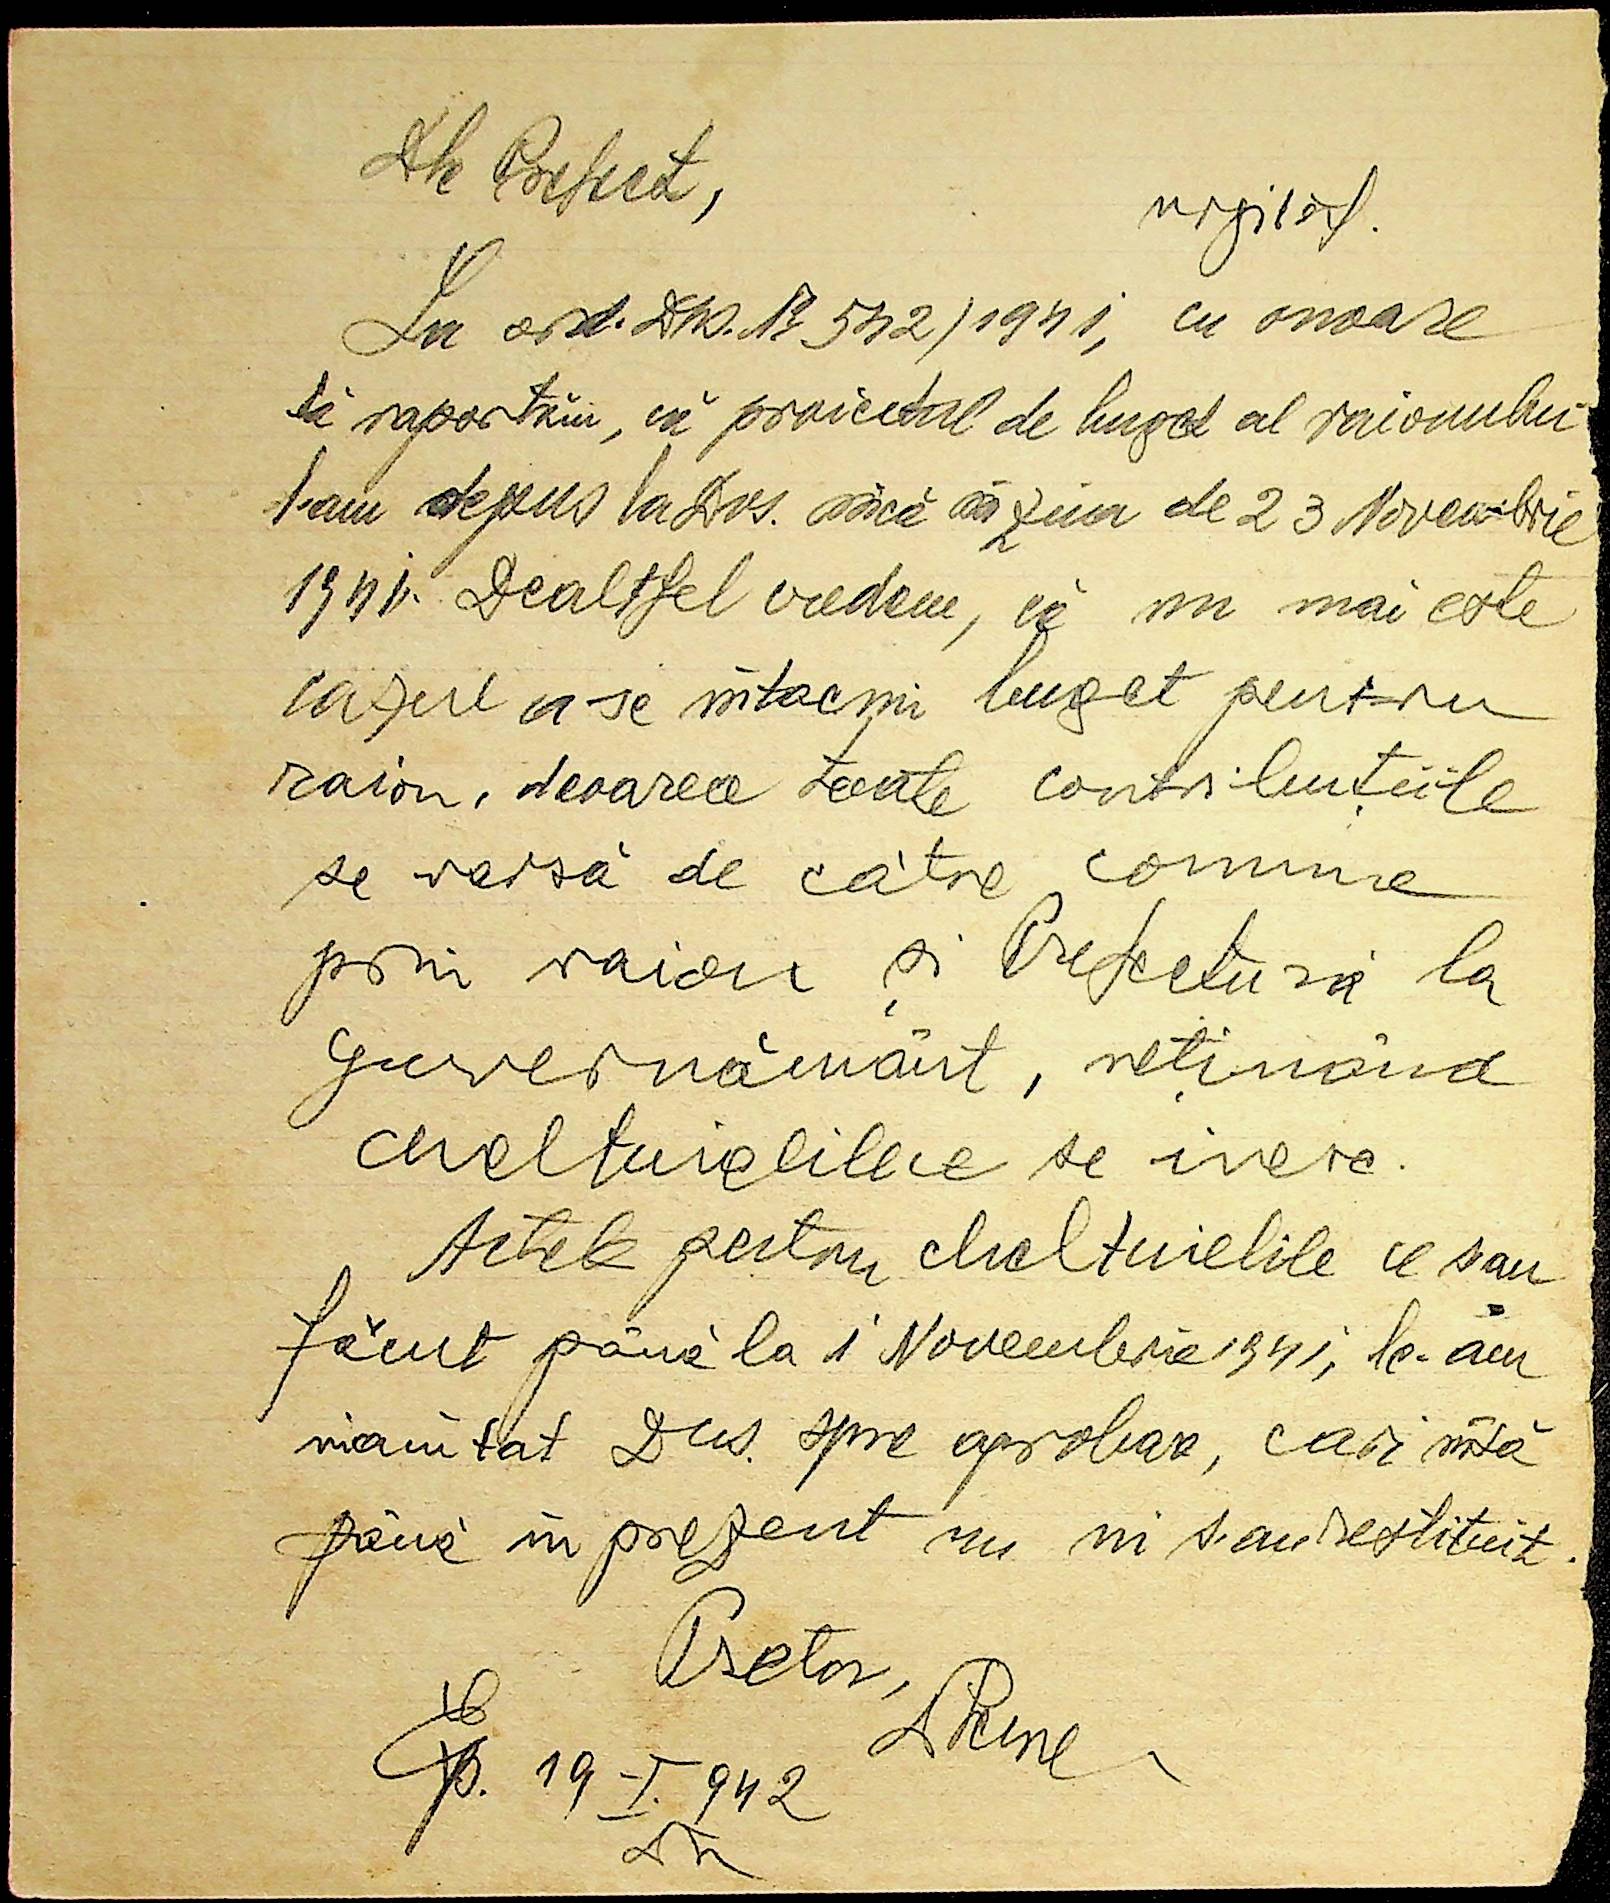 Dle Prefect,
La ord. Dvs. № 542/1941, cu onoare
să raportăm, că proiectul de buget al raionului
l-am depus la Dvs. încă în ziua de 23 Novembrie
1941. Dealtfel credem, că nu mai este
cazul a-se întocmi buget pentru
raion, deoarece toate contribuțiile
se varsă de către comune
prin raion și Prefectură la
guvernământ, reținând
cheltuielile
Actele pentru cheltuielile ce sau
făcut până la 1 Novembrie 1941, le-am
înaintat Dvs. spre aprobare, cari însă
până în prezent nu ni s-au restituit.
Pretor,
Exp. 19 I. 942